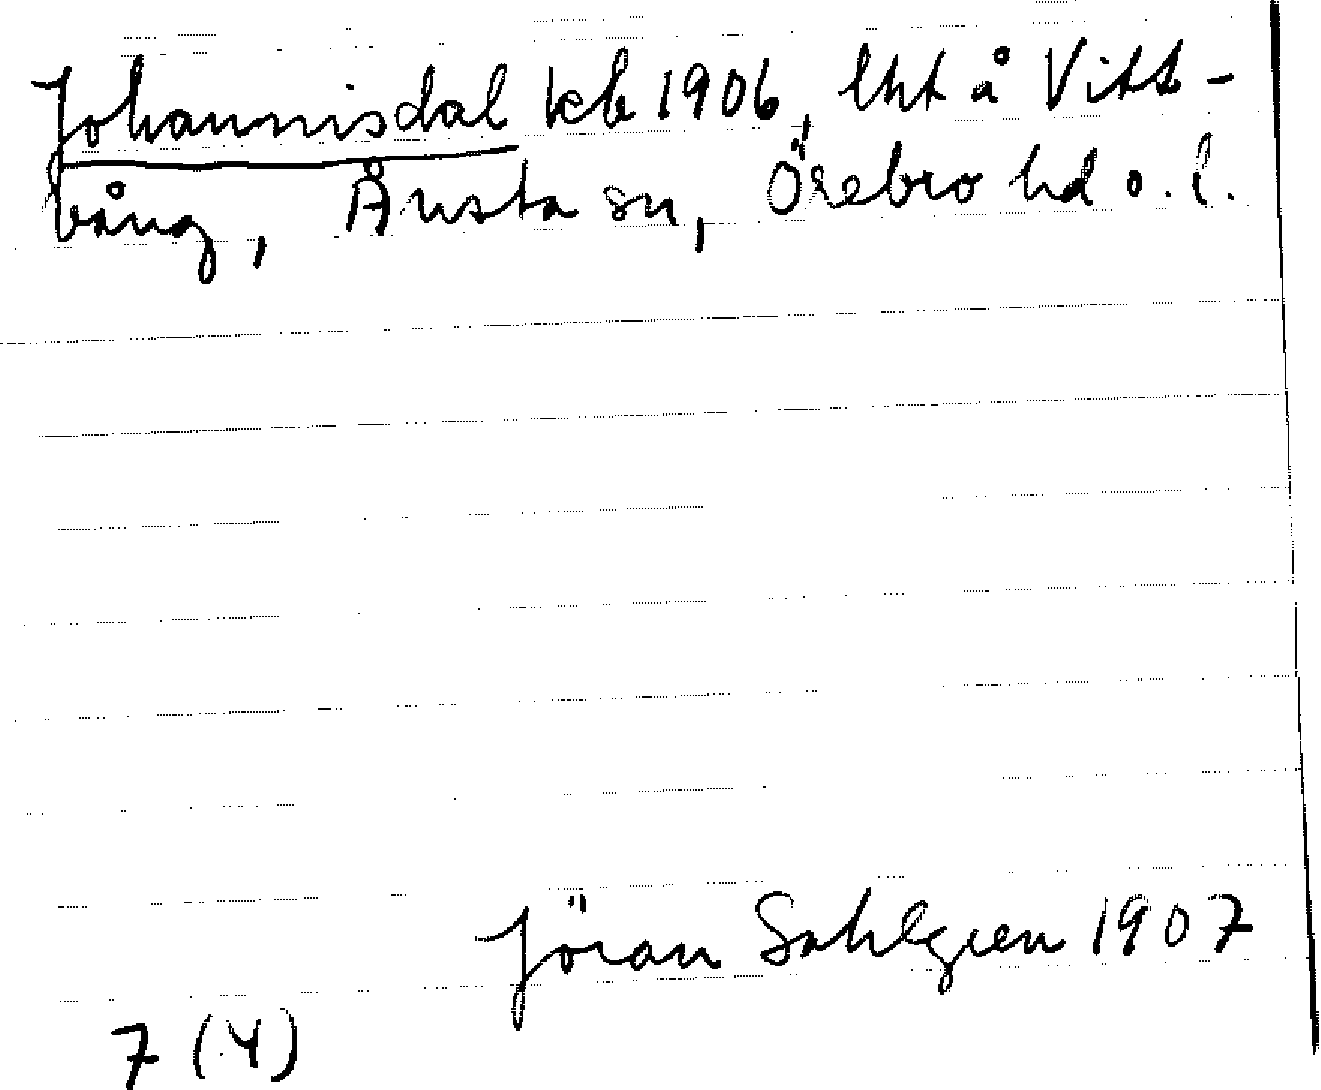 Johannisdal kb 1906, lht å Vitt-
vång, Ånsta sn, Örebro hd o. l.
Jöran Sahlgren 1907
7 (4)